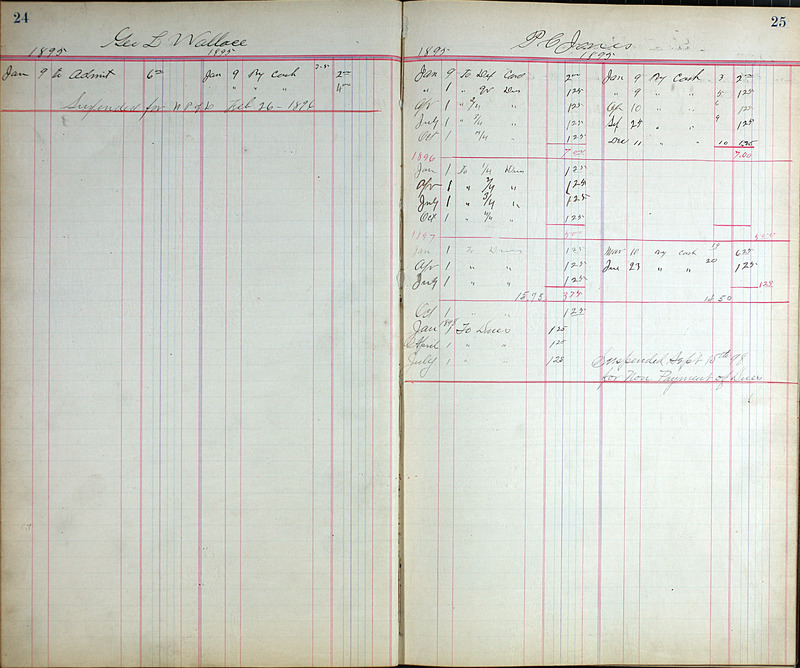 24
Geo L Wallace
1895 1895
Jan 9 to Admit 6 00 Jan 9 By Cash 2 00
" " " 4 00
Suspended for N.P. of D Feb 26 - 1896
25
P C
1895 1895
Jan 9 To Card 2 00 Jan 9 By Cash 3 2 00
" 1 " Qr Dues 1 25 " 9 " " 5 1 25
Apr 1 " 2/4 " 1 25 Apr 10 " " 6 1 25
July 1 " 3/4 " 1 25 Sep 25 " " 9 1 25
Oct 1 " 4/4 " 1 25 Dec 11 " " 10 1 25
7 00 7.00
1896
Jan 1 To 1/4 Dues 1 25
Apr 1 " 2/4 " 1 25
July 1 " 3/4 " 1 25
Oct 1 " 4/4 " 1 25
1897
Jan 1 To Dues 1 25 Mar 10 By Cash 19 6 25
Apr 1 " " 1 25 June 23 " " 20 1 25
July 1 " " 1 25 1 25
15.75 3 75 14 50
Oct 1 " " 1 25
Jan 1898 To Dues 1 25
April 1 " " 1 25
July 1 " " 1 25 Suspended Sept 15th 98
for Non Payment of Dues